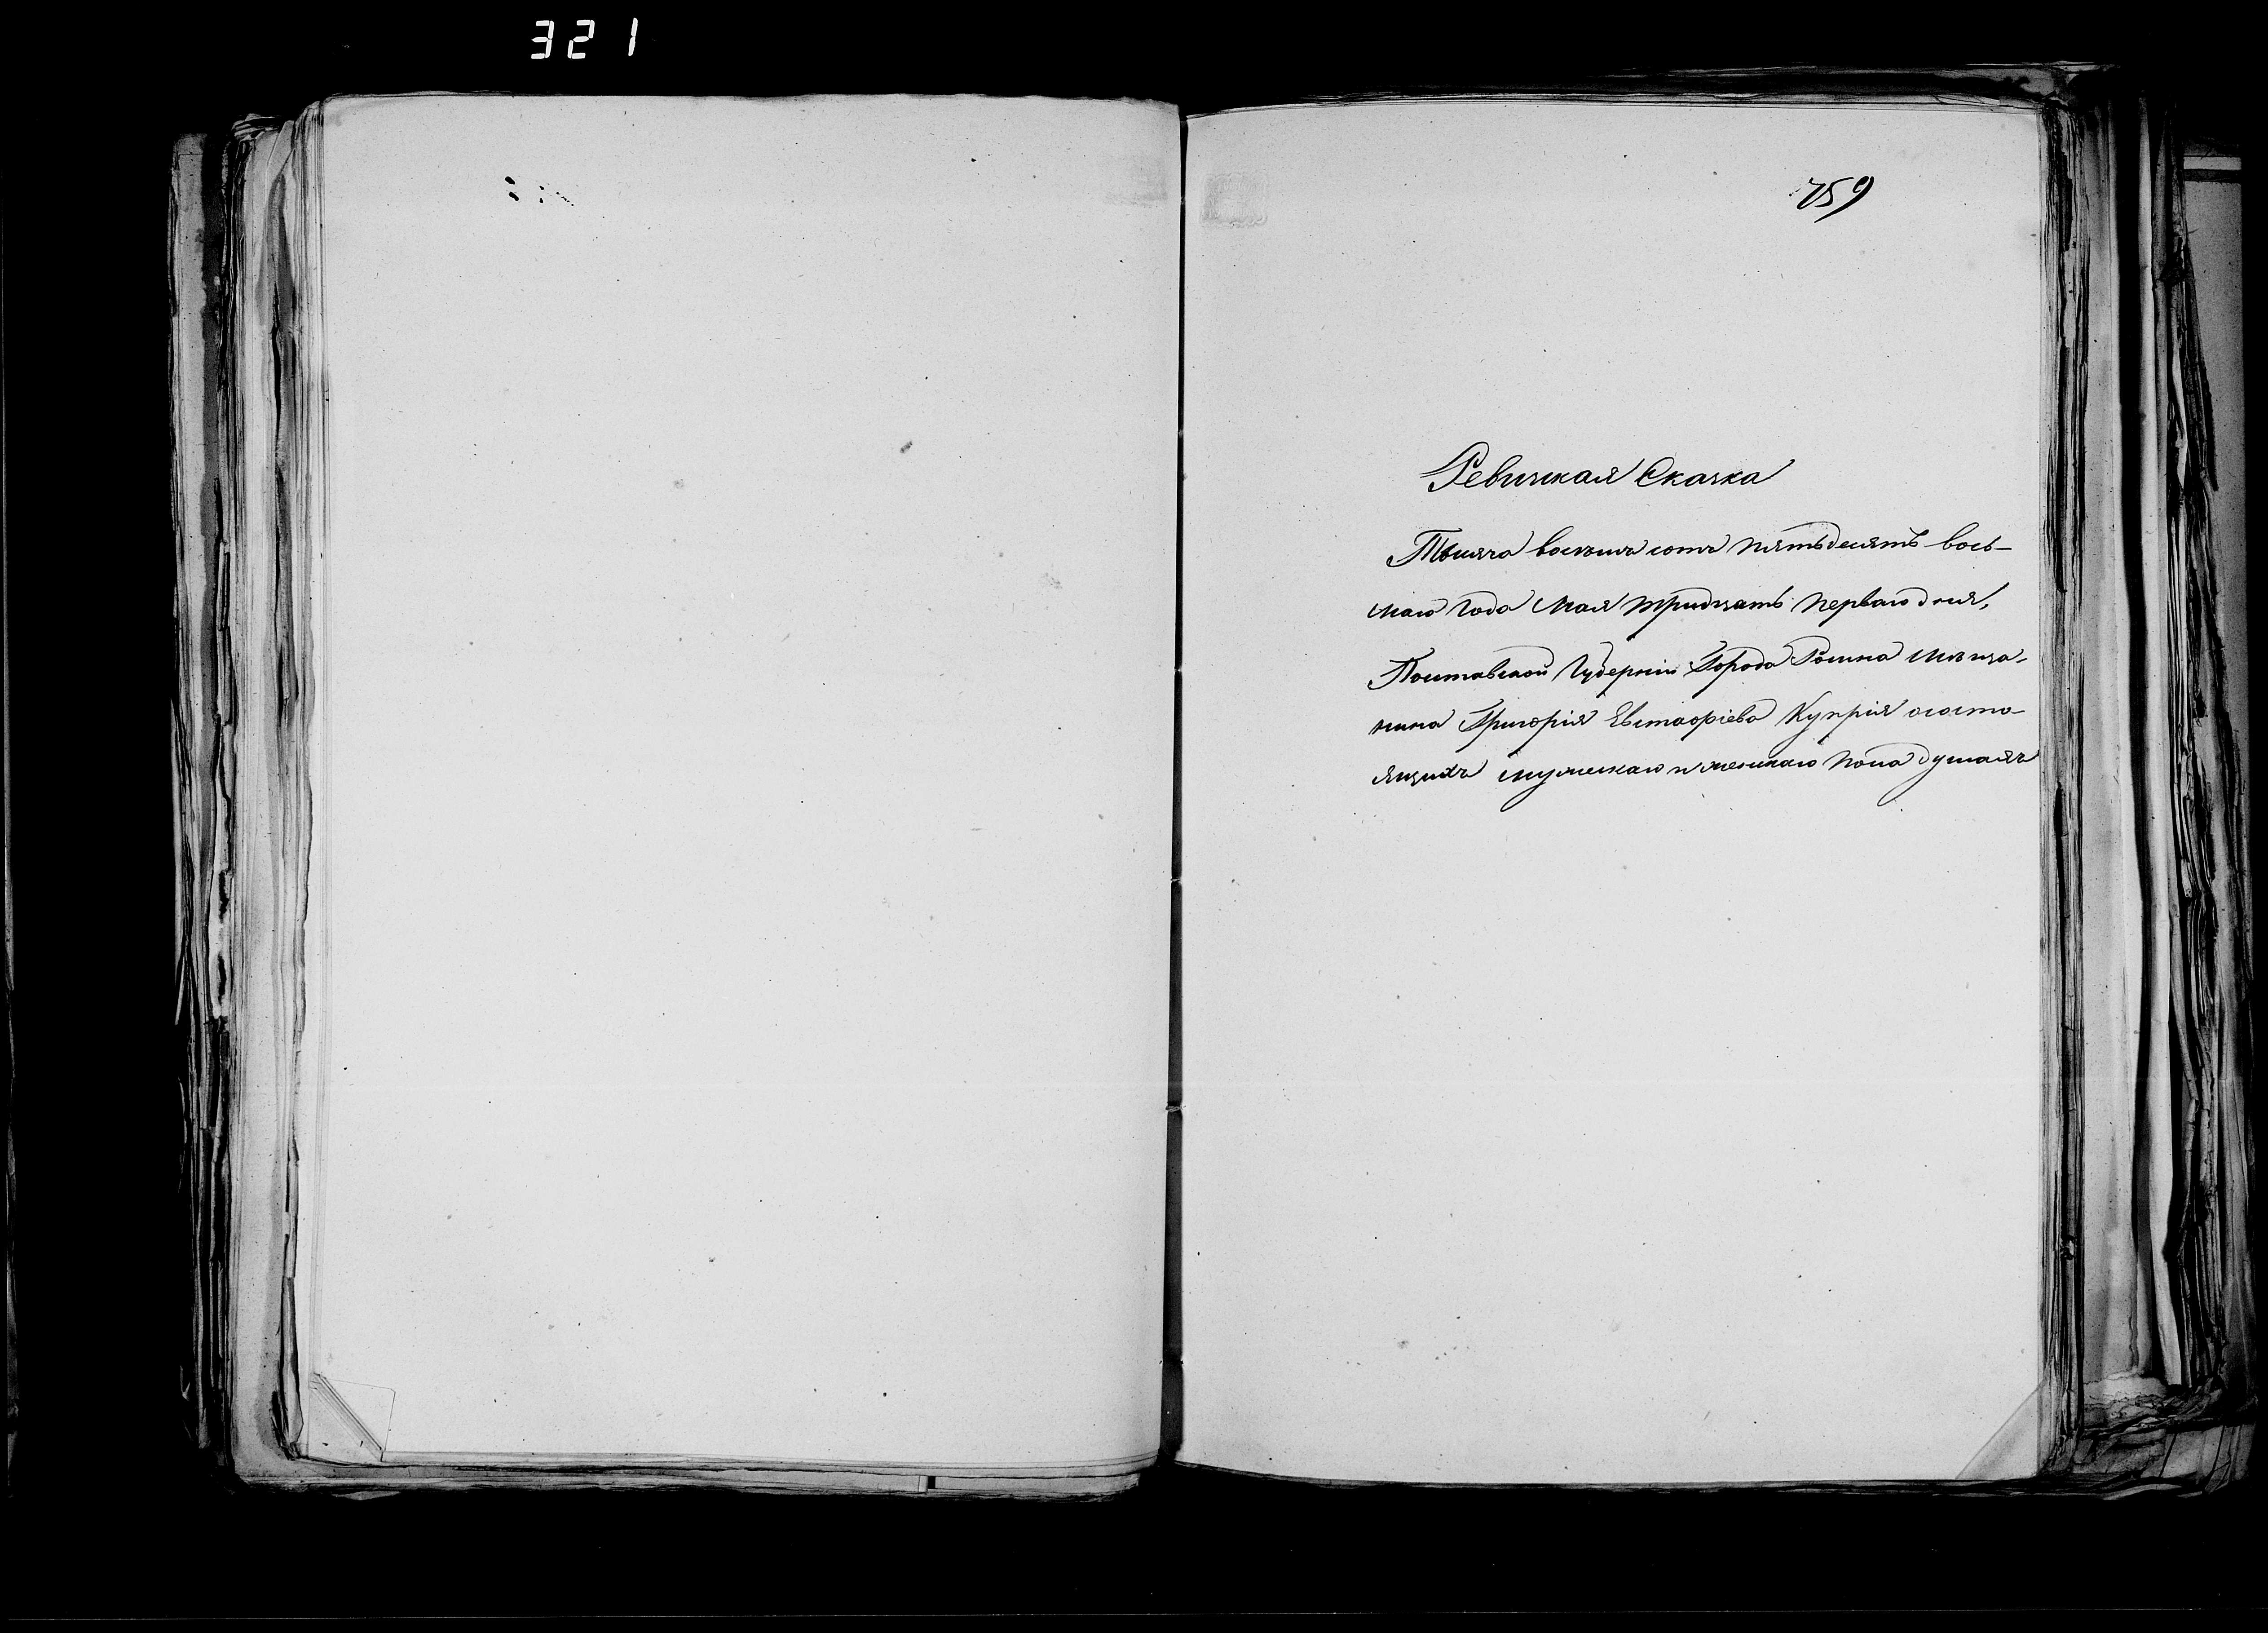 321
759
Ревизская Сказка
Тысяча восемь сотъ пятьдесятъ вось-
маго года Мая тридцать перваго дня,
Полтавской Губерніи Города Ромна Мѣща-
нина Григорія Евстафіева Купрія ососто-
ящихъ мужескаго и женскаго пола душахъ